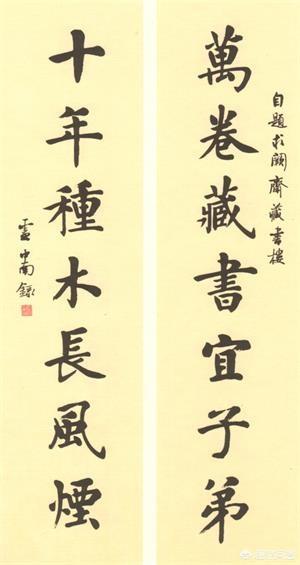 自題求闕齋藏書樓
萬卷藏書宜子弟
十年種木長風煙
中南錄